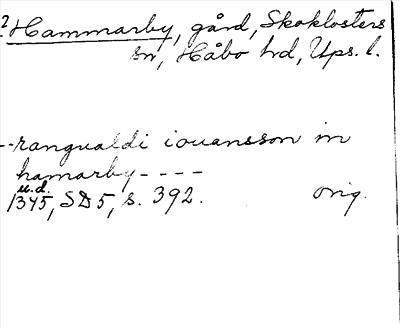 2 Hammarby, gård, Skoklosters
sn, Håbo hd, Ups. l.
--rangualdi iouansson in
hamarby----
u.d.
1345, SD 5, s. 392. orig.